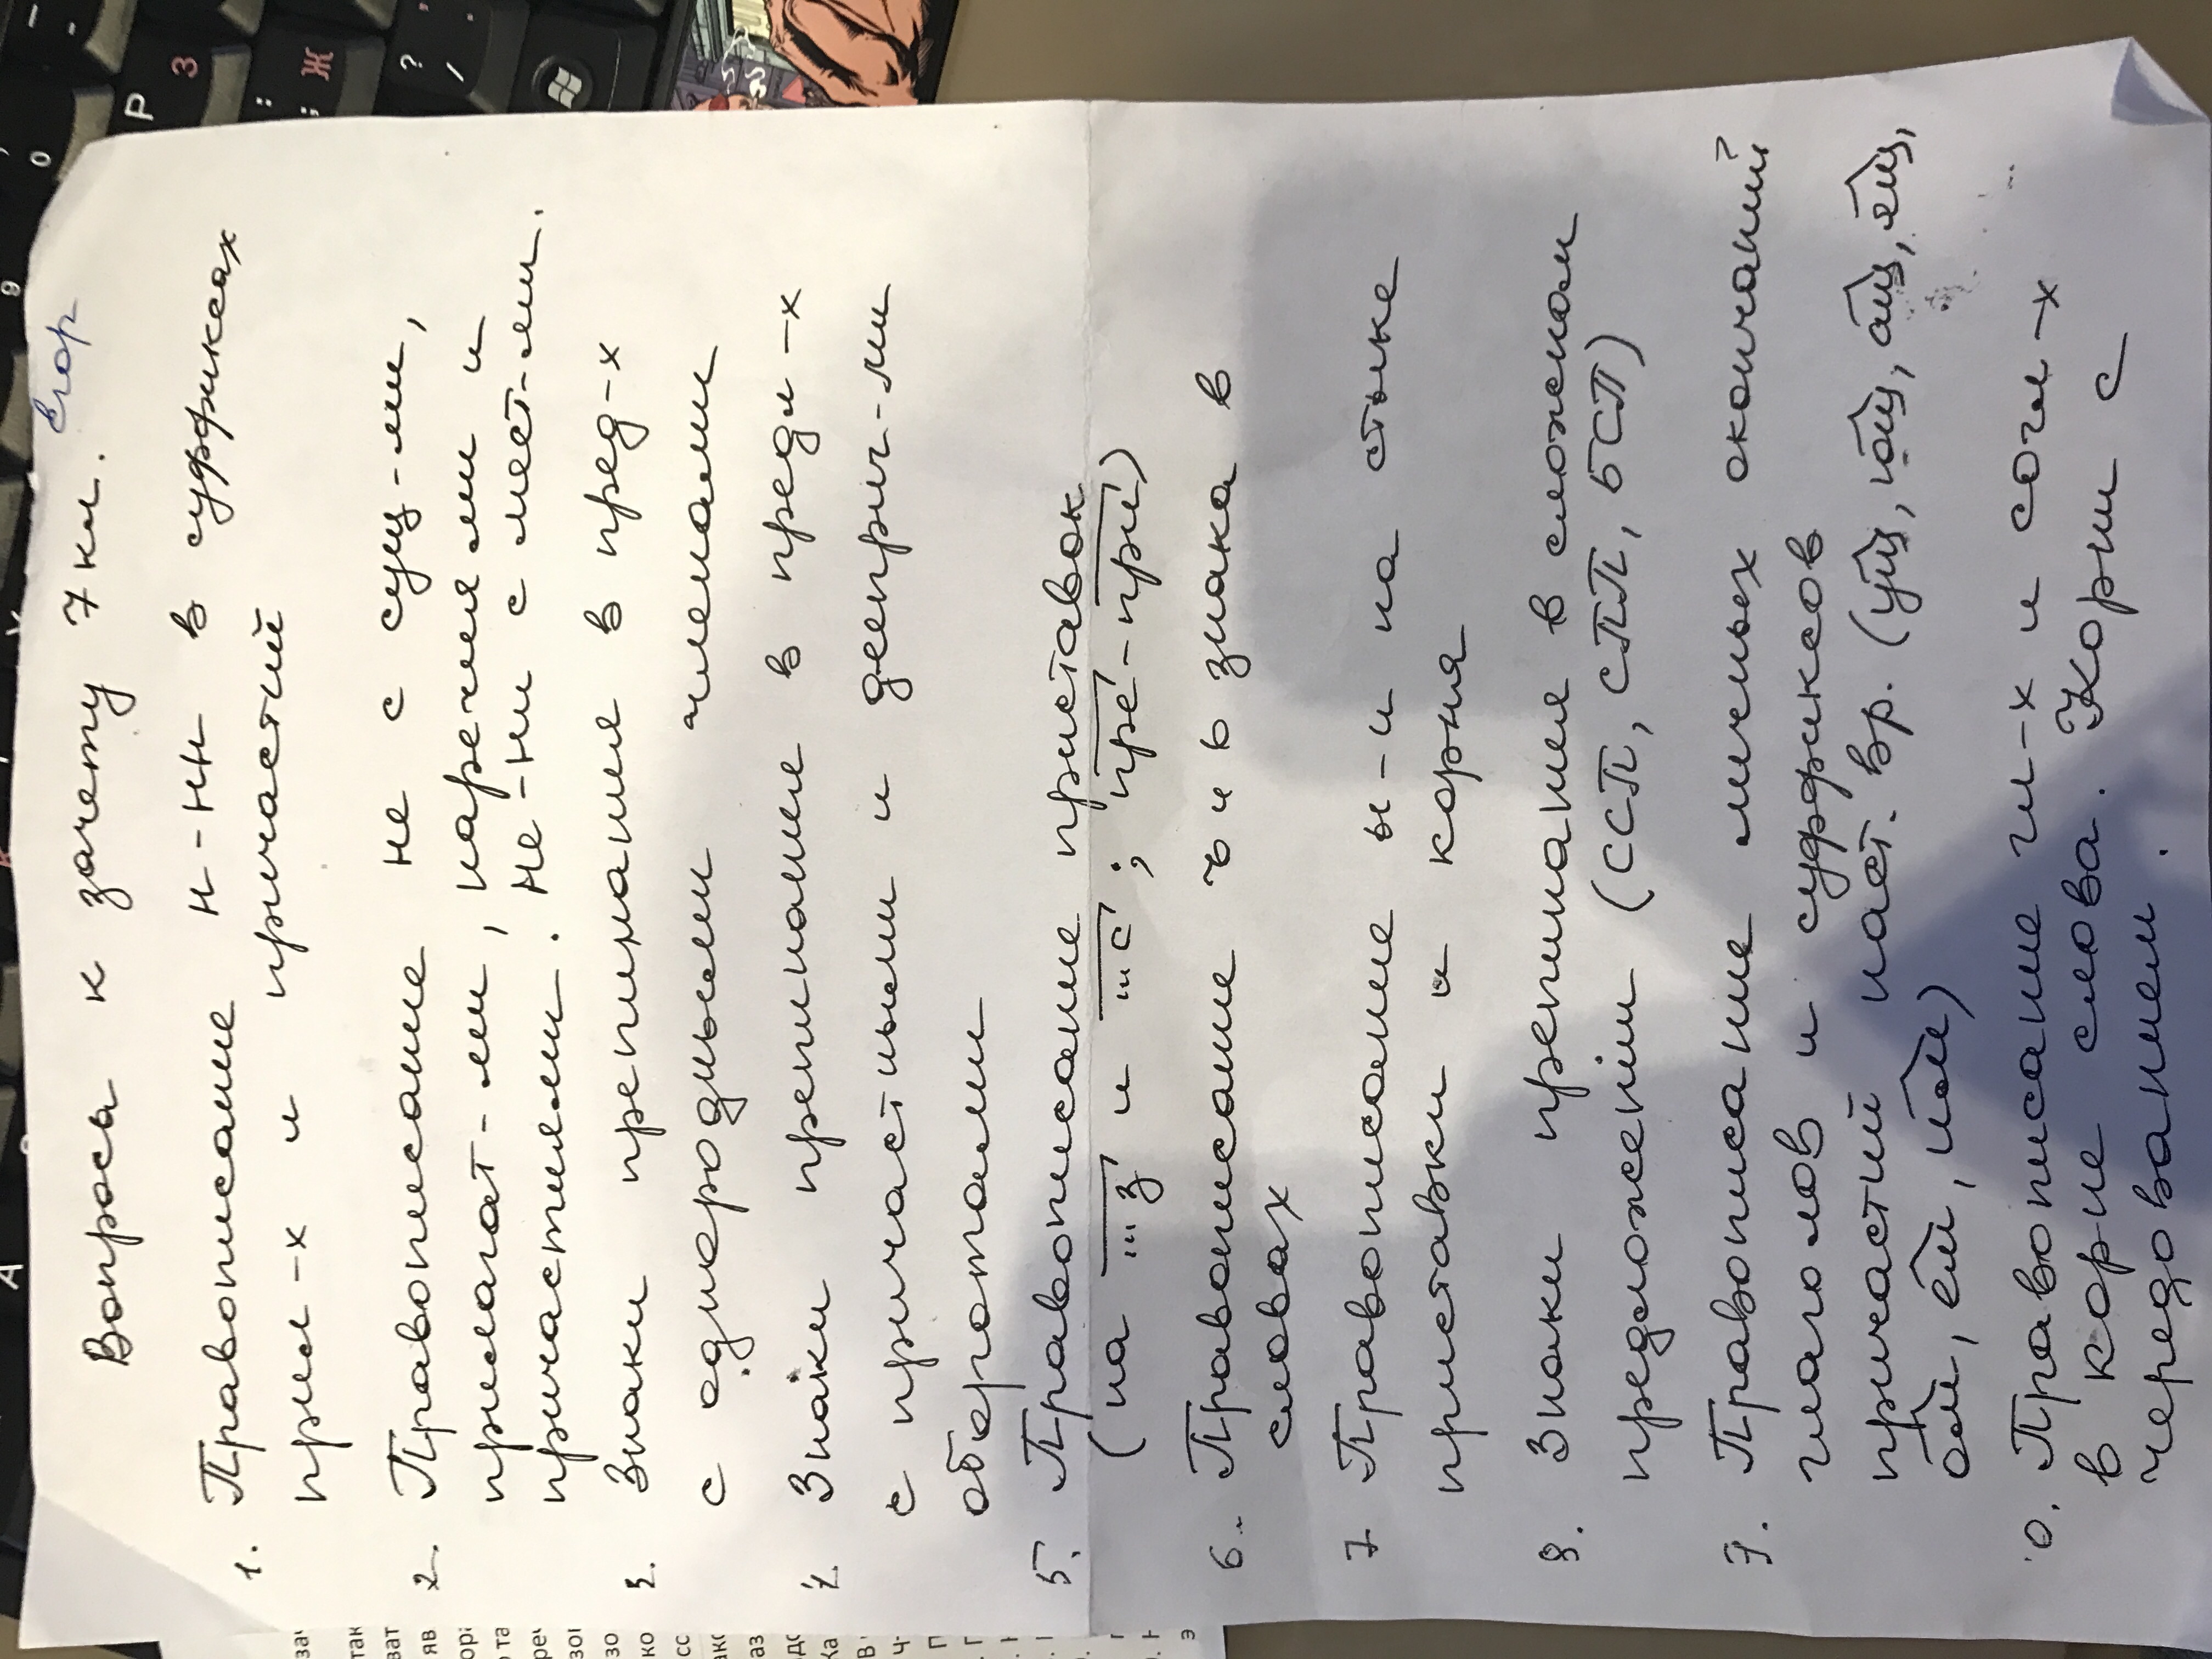 Егор
Вопросы к зачету 7 кл.
1. Правописание н-нн в суффиксах
прил-х и причастий
2. Правописание не с сущ-ми,
прилагат-ми, наречиями и
причастиями. Не-ни с мест-ми.
3. Знаки препинания в пред-х
с однородными членами
4. Знаки препинание в предл-х
с причастными и дееприч-ми
оборотами
5. Правописание приставок
(на ...з и ...с; пре-при)
6. Правописание ъ и ь знака в
словах
7 Правописание ы-и на стыке
приставки и корня
8. Знаки препинание в сложном
предложении (ССП, СПП, БСП)
9. Правописание личных окончаний
глаголов и суффиксов
причастий наст. вр. (ущ, ющ, ащ, ящ,
ом, ем, им)
0. Правописание гл-х и согл-х
в корне слова. Корни с
чередованием.
А
Р
З
Ж
;
:
?
/
9
0